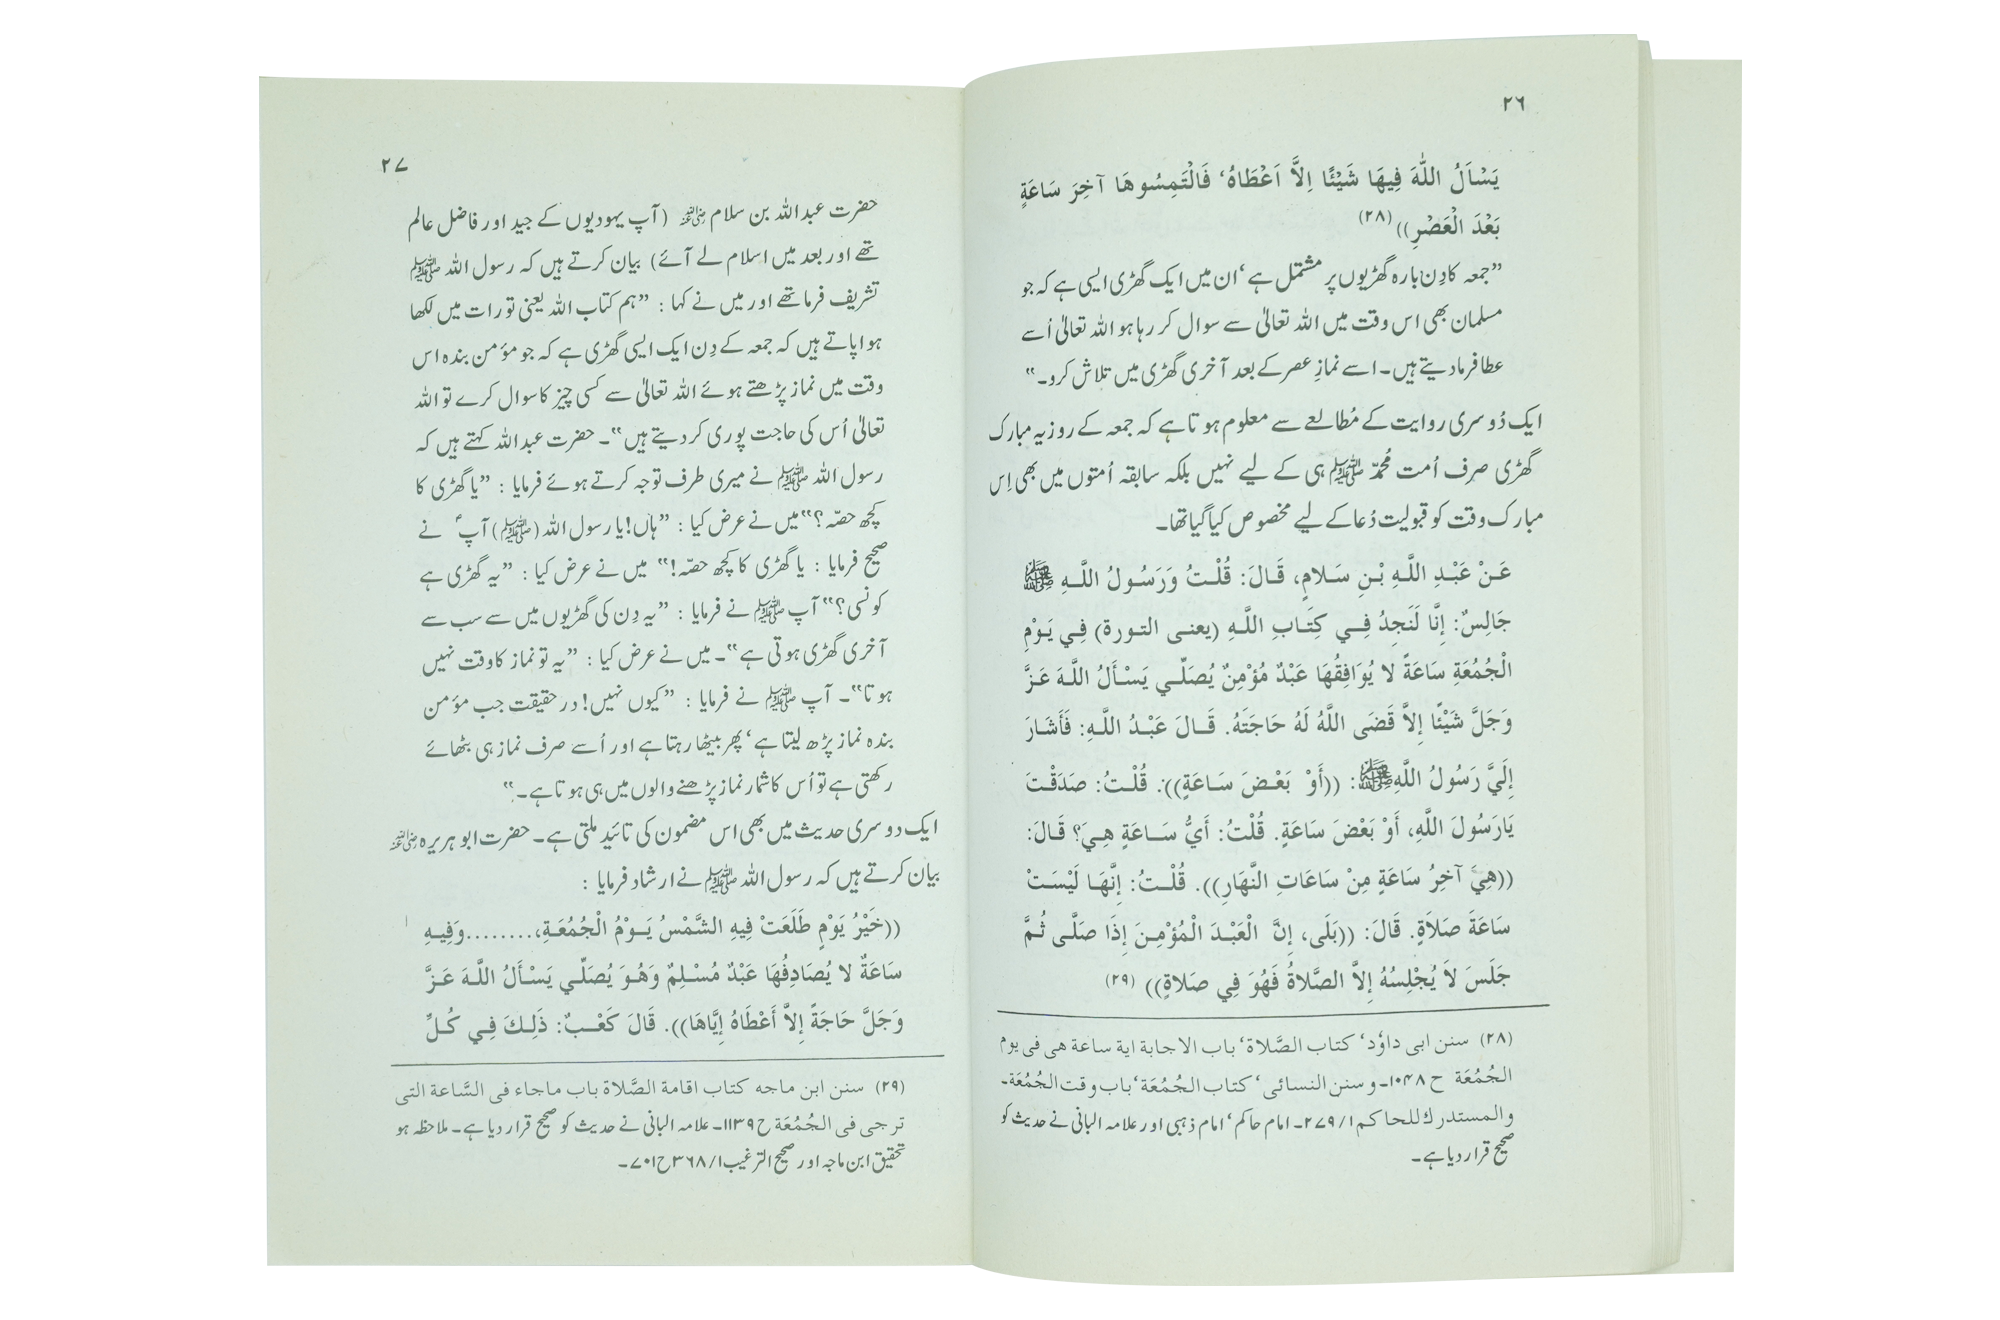 ۲۶
یَسْاَلُ اللّٰہَ فِیھَا شَیْئًا اِلاَّ اَعْطَاہُ‘ فَالْتَمِسُوھَا آخِرَ سَاعَةٍ
بَعْدَ الْعَصْرِ)) (۲۸)
”جمعہ کا دِن بارہ گھڑیوں پر مشتمل ہے‘ ان میں ایک گھڑی ایسی ہے کہ جو
مسلمان بھی اس وقت میں اللہ تعالیٰ سے سوال کر رہا ہو اللہ تعالیٰ اُسے
عطا فرما دیتے ہیں۔ اسے نمازِ عصر کے بعد آخری گھڑی میں تلاش کرو۔“
ایک دُوسری روایت کے مُطالعے سے معلوم ہوتا ہے کہ جمعہ کے روز یہ مبارک
گھڑی صرف اُمت مُحمّد ﷺ ہی کے لیے نہیں بلکہ سابقہ اُمتوں میں بھی اِس
مبارک وقت کو قبولیت دُعا کے لیے مخصوص کیا گیا تھا۔
عَنْ عَبْدِ اللَّهِ بْنِ سَلامٍ، قَالَ: قُلْتُ وَرَسُولُ اللَّهِ ﷺ
جَالِسٌ: إِنَّا لَنَجِدُ فِي كِتَابِ اللَّهِ (يعنى التورة) فِي يَوْمِ
الْجُمُعَةِ سَاعَةً لا يُوَافِقُهَا عَبْدٌ مُؤْمِنٌ يُصَلِّي يَسْأَلُ اللَّهَ عَزَّ
وَجَلَّ شَيْئًا إِلاَّ قَضَى اللَّهُ لَهُ حَاجَتَهُ. قَالَ عَبْدُ اللَّهِ: فَأَشَارَ
إِلَيَّ رَسُولُ اللَّهِ ﷺ: ((أَوْ بَعْضَ سَاعَةٍ)). قُلْتُ: صَدَقْتَ
يَارَسُولَ اللَّهِ، أَوْ بَعْضَ سَاعَةٍ. قُلْتُ: أَيُّ سَاعَةٍ هِيَ؟ قَالَ:
((هِيَ آخِرُ سَاعَةٍ مِنْ سَاعَاتِ النَّهَارِ)). قُلْتُ: إِنَّهَا لَيْسَتْ
سَاعَةَ صَلاَةٍ. قَالَ: ((بَلَى، إِنَّ الْعَبْدَ الْمُؤْمِنَ إِذَا صَلَّى ثُمَّ
جَلَسَ لاَ يُجْلِسُهُ إِلاَّ الصَّلاةُ فَهُوَ فِي صَلاةٍ)) (۲۹)
(۲۸) سنن ابی داؤد‘ کتاب الصَّلاۃ‘ باب الاجابة اية ساعة هى فى يوم
الجُمُعَة ح ۱۰۴۸۔ و سنن النسائی‘ کتاب الجُمُعَة‘ باب وقت الجُمُعَة۔
والمستدرك للحاكم ۲۷۹/۱۔ امام حاکم‘ امام ذہبی اور علامہ البانی نے حدیث کو
صحیح قرار دیا ہے۔
۲۷
حضرت عبداللہ بن سلام ؓ (آپ یہودیوں کے جید اور فاضل عالم
تھے اور بعد میں اسلام لے آئے) بیان کرتے ہیں کہ رسول اللہ ﷺ
تشریف فرما تھے اور میں نے کہا : ”ہم کتاب اللہ یعنی تورات میں لکھا
ہوا پاتے ہیں کہ جمعہ کے دِن ایک ایسی گھڑی ہے کہ جو مؤمن بندہ اس
وقت میں نماز پڑھتے ہوئے اللہ تعالیٰ سے کسی چیز کا سوال کرے تو اللہ
تعالیٰ اُس کی حاجت پوری کر دیتے ہیں“۔ حضرت عبداللہ کہتے ہیں کہ
رسول اللہ ﷺ نے میری طرف توجہ کرتے ہوئے فرمایا : ”یا گھڑی کا
کچھ حصّہ؟“ میں نے عرض کیا : ”ہاں! یا رسول اللہ (ﷺ) آپؐ نے
صحیح فرمایا : یا گھڑی کا کچھ حصّہ!“ میں نے عرض کیا : ”یہ گھڑی ہے
کونسی؟“ آپ ﷺ نے فرمایا : ”یہ دِن کی گھڑیوں میں سے سب سے
آخری گھڑی ہوتی ہے“۔ میں نے عرض کیا : ”یہ تو نماز کا وقت نہیں
ہوتا“۔ آپ ﷺ نے فرمایا : ”کیوں نہیں! درحقیقت جب مؤمن
بندہ نماز پڑھ لیتا ہے‘ پھر بیٹھا رہتا ہے اور اُسے صرف نماز ہی بٹھائے
رکھتی ہے تو اُس کا شمار نماز پڑھنے والوں میں ہی ہوتا ہے۔“
ایک دوسری حدیث میں بھی اس مضمون کی تائید ملتی ہے۔ حضرت ابو ہریرہ ؓ
بیان کرتے ہیں کہ رسول اللہ ﷺ نے ارشاد فرمایا :
((خَيْرُ يَوْمٍ طَلَعَتْ فِيهِ الشَّمْسُ يَوْمُ الْجُمُعَةِ،........وَفِيهِ
سَاعَةٌ لا يُصَادِفُهَا عَبْدٌ مُسْلِمٌ وَهُوَ يُصَلِّي يَسْأَلُ اللَّهَ عَزَّ
وَجَلَّ حَاجَةً إِلاَّ أَعْطَاهُ إِيَّاهَا)). قَالَ كَعْبٌ: ذَلِكَ فِي كُلِّ
(۲۹) سنن ابن ماجه کتاب اقامة الصَّلاة باب ماجاء فى السَّاعة التى
ترجى فى الجُمُعَة ح ۱۱۳۹۔ علامہ البانی نے حدیث کو صحیح قرار دیا ہے۔ ملاحظہ ہو
تحقیق ابن ماجہ اور صحیح الترغیب ۳۶۸/۱ ح ۷۰۱۔